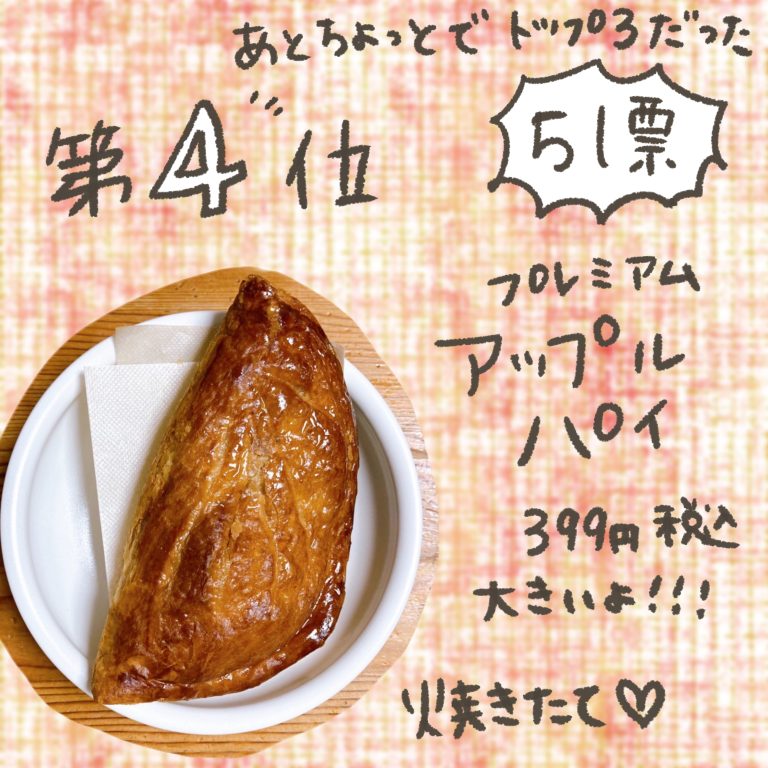 あとちょっとでトップ3だった
第4位
51票
プレミアム
アップル
パイ
399円 税込
大きいよ!!!
焼きたて♡